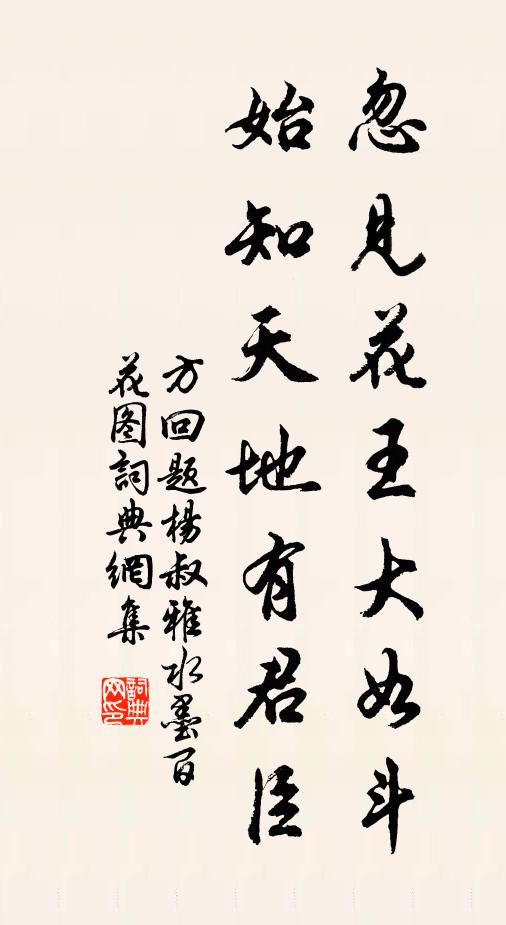 忽见花王大如斗
始知天地有君臣
方回题杨叔雅水墨百
花图詞典網集
詞典
网印